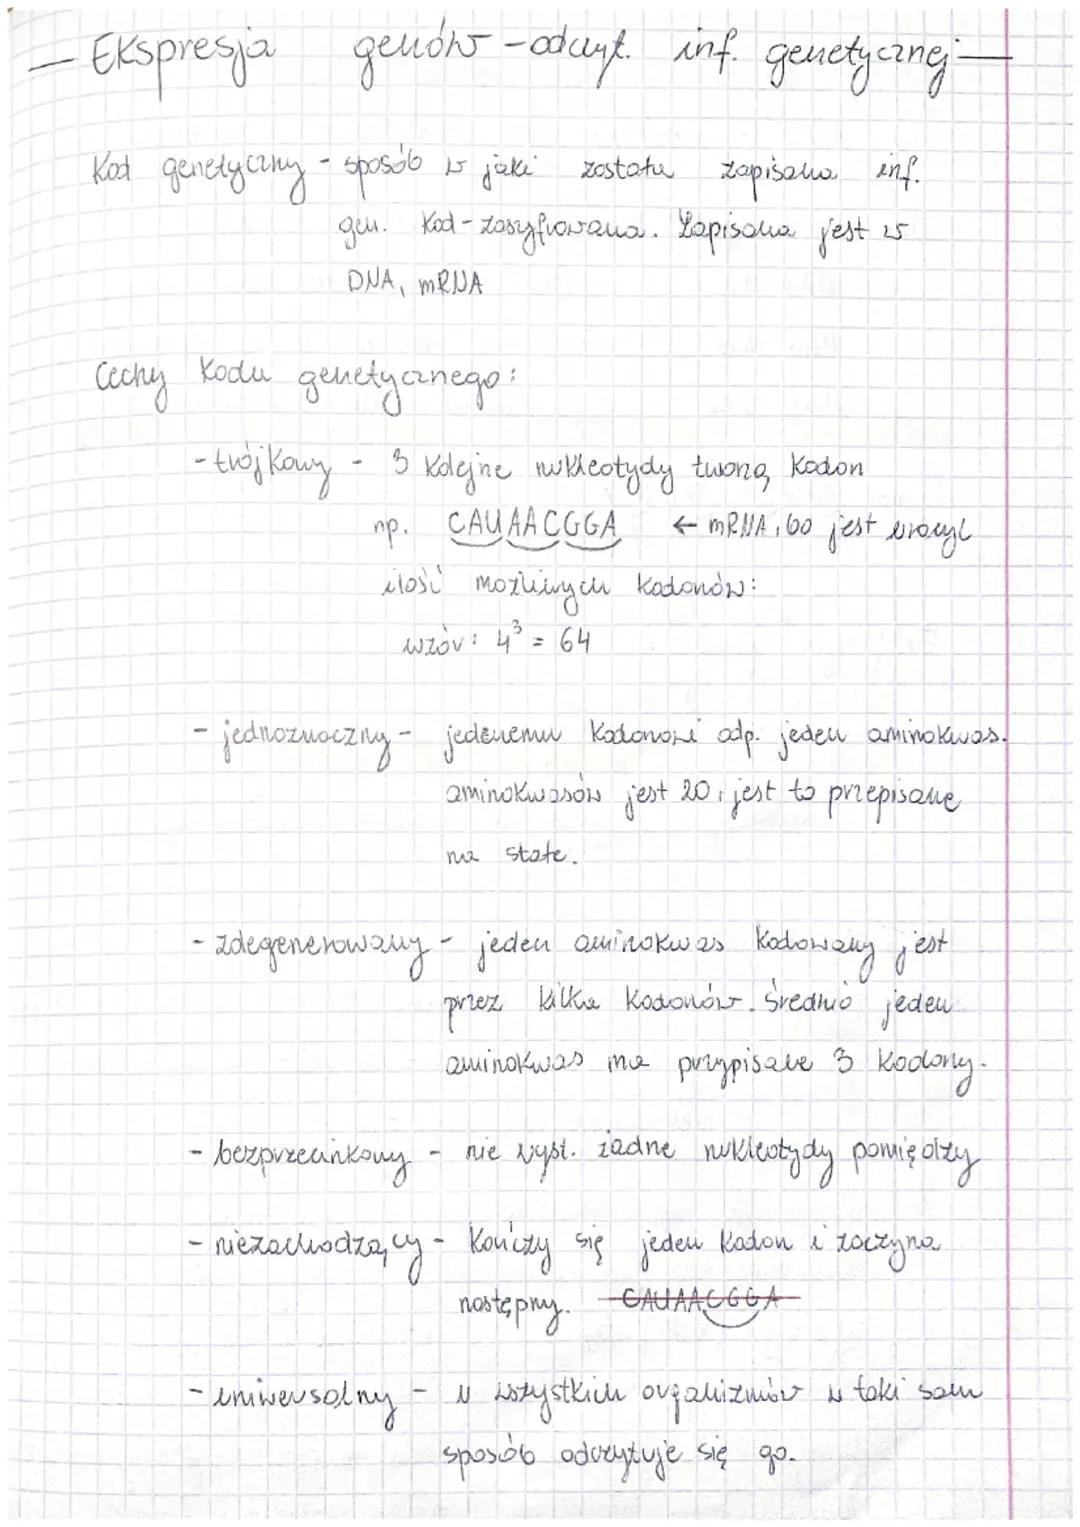 — Ekspresja genów - odczyt. inf. genetycznej —
Kod genetyczny - sposób w jaki została zapisana inf.
gen. Kod - zaszyfrowana. Zapisana jest w
DNA, mRNA
Cechy kodu genetycznego:
- trójkowy - 3 kolejne nukleotydy tworzą kodon
np. CAUAACGGA ← mRNA, bo jest uracyl
ilość możliwych kodonów:
wzór: 4³ = 64
- jednoznaczny - jedenemu kodonowi odp. jeden aminokwas.
aminokwasów jest 20, jest to przepisane
na stałe.
- zdegenerowany - jeden aminokwas kodowany jest
przez kilka kodonów. Średnio jeden
aminokwas ma przypisane 3 kodony.
- bezprzecinkowy - nie wyst. żadne nukleotydy pomiędzy
- niezachodzący - kończy się jeden kodon i zaczyna
następny. CAUAACGGA
- uniwersalny - u wszystkich organizmów w taki sam
sposób odczytuje się go.